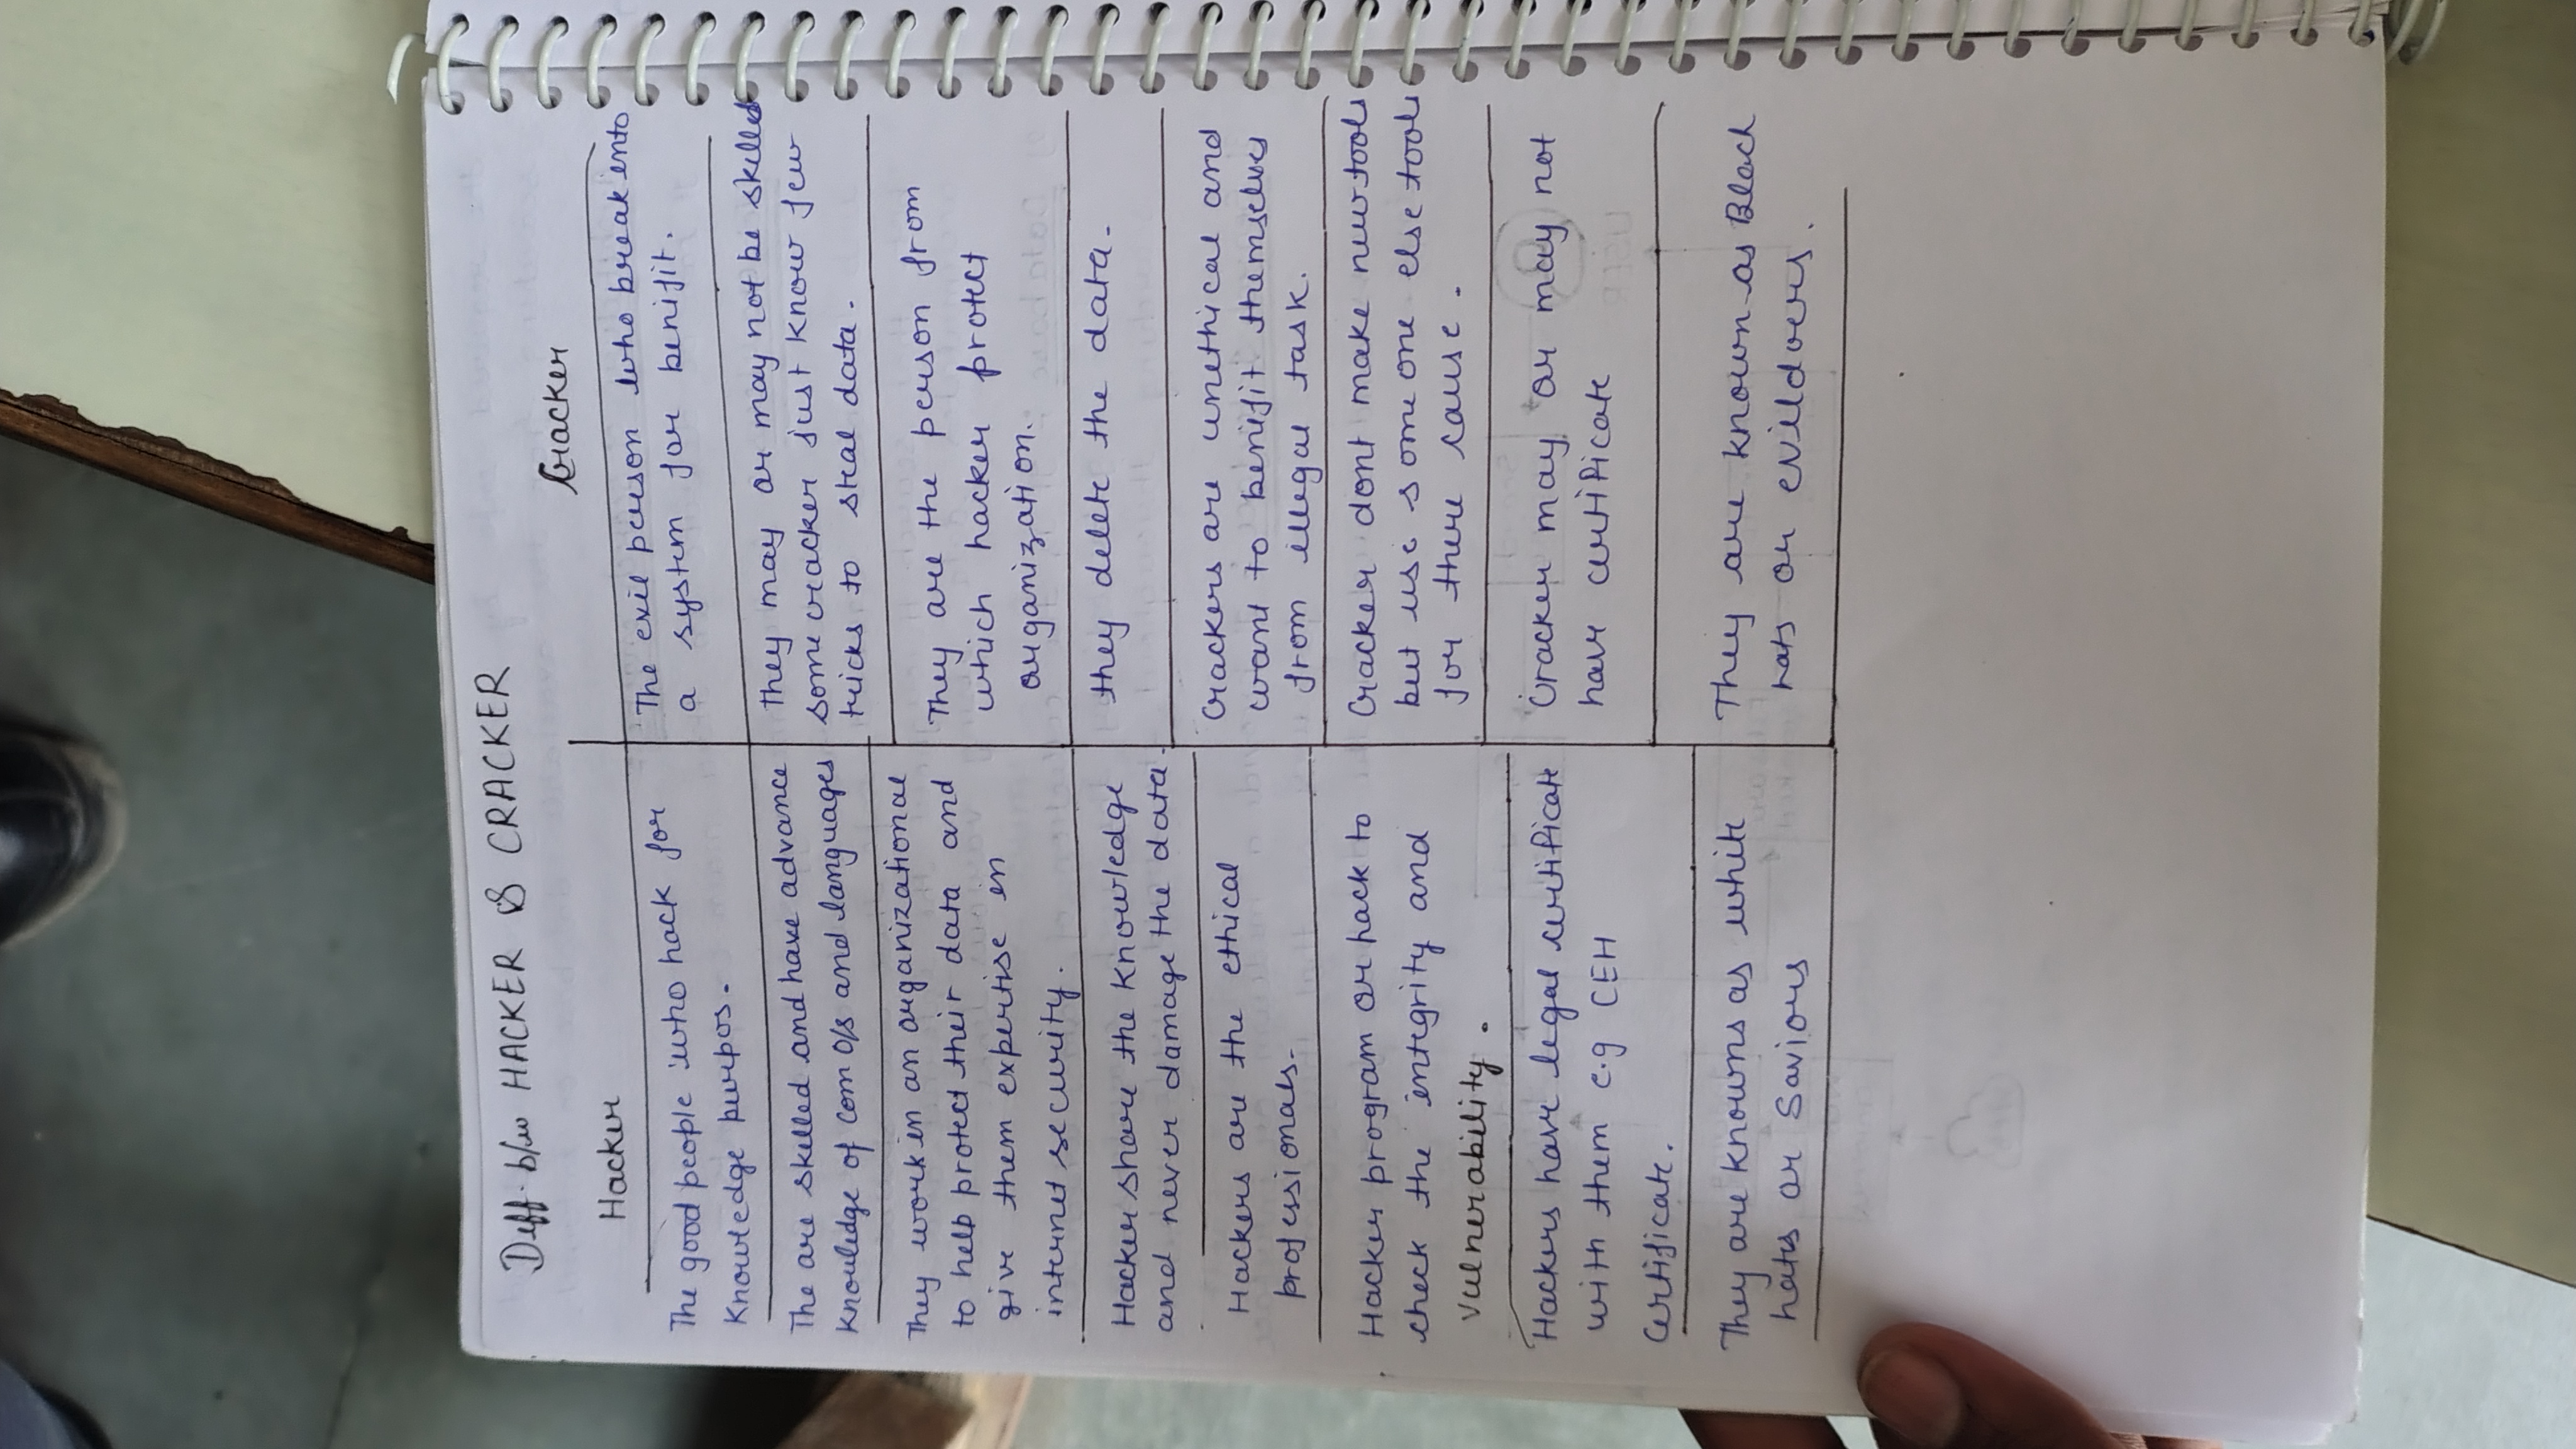 Diff. b/w HACKER & CRACKER
Hacker
Cracker
The good people who hack for
Knowledge purpos.
The evil person who break into
a system for benifit.
The are skilled and have advance
knowledge of com O/S and languages
They may or may not be skilled
some cracker just know few
tricks to steal data.
They work in an organizational
to help protect their data and
give them expertise in
internet security.
They are the person from
which hacker protect
organization.
Hacker share the knowledge
and never damage the data.
they delete the data.
Hackers are the ethical
professionals.
Crackers are unethical and
want to benifit themselves
from illegal task.
Hacker program or hack to
check the integrity and
vulnerability.
Cracker dont make new tools
but use some one else tools
for there cause.
Hackers have legal certificate
with them e.g CEH
Certificate.
Cracker may or may not
have certificate
They are knowns as white
hats or Saviours
They are known as Black
hats or evildoers.